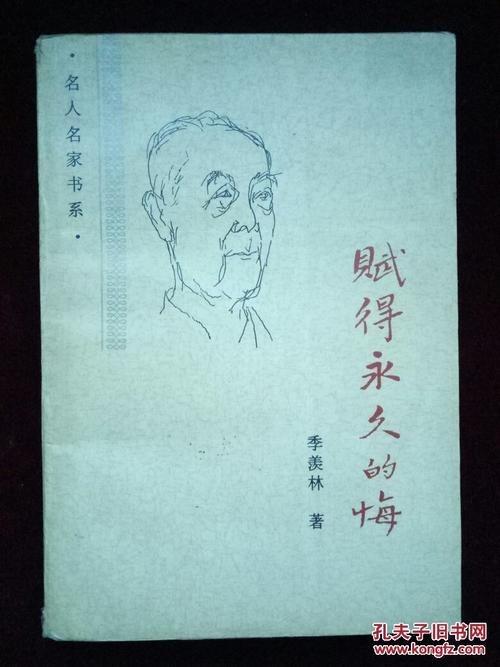 ·名人名家书系·
賦得永久的悔
季羡林 著
孔夫子旧书网
kongfz.com